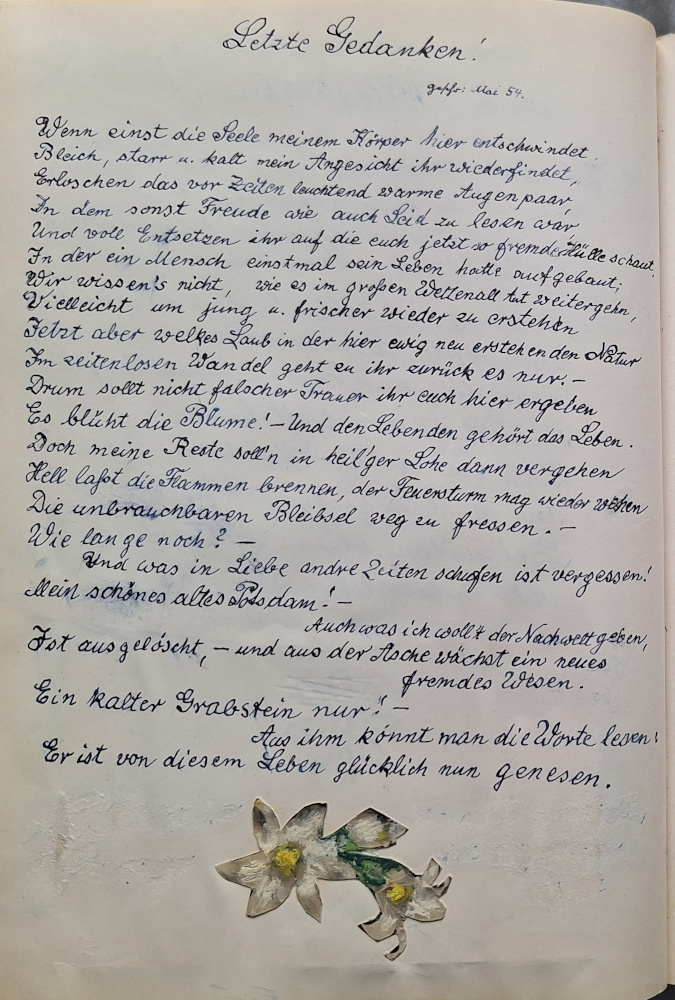 Letzte Gedanken!
geschr: Mai 54.
Wenn einst die Seele meinem Körper hier entschwindet,
Bleich, starr u. kalt mein Angesicht ihr wiederfindet,
Erloschen das vor Zeiten leuchtend warme Augenpaar,
In dem sonst Freude wie auch Leid zu lesen war,
Und voll Entsetzen ihr auf die euch jetzt so fremde Hülle schaut,
In der ein Mensch einstmal sein Leben hatte aufgebaut;
Wir wissen's nicht, wie es im großen Weltenall tut weitergehn,
Vielleicht um jung u. frischer wieder zu erstehen
Jetzt aber welkes Laub in der hier ewig neu erstehenden Natur
Im zeitenlosen Wandel geht zu ihr zurück es nur. -
Drum sollt nicht falscher Trauer ihr euch hier ergeben
Es blüht die Blume! - Und den Lebenden gehört das Leben.
Doch meine Reste soll'n in heil'ger Lohe dann vergehen
Hell laßt die Flammen brennen, der Feuersturm mag wieder wehen
Die unbrauchbaren Bleibsel weg zu fressen. -
Wie lange noch? -
Und was in Liebe andre Zeiten schufen ist vergessen!
Mein schönes altes Potsdam! -
Auch was ich wollt der Nachwelt geben,
Ist ausgelöscht, - und aus der Asche wächst ein neues
fremdes Wesen.
Ein kalter Grabstein nur! -
Aus ihm könnt man die Worte lesen:
Er ist von diesem Leben glücklich nun genesen.